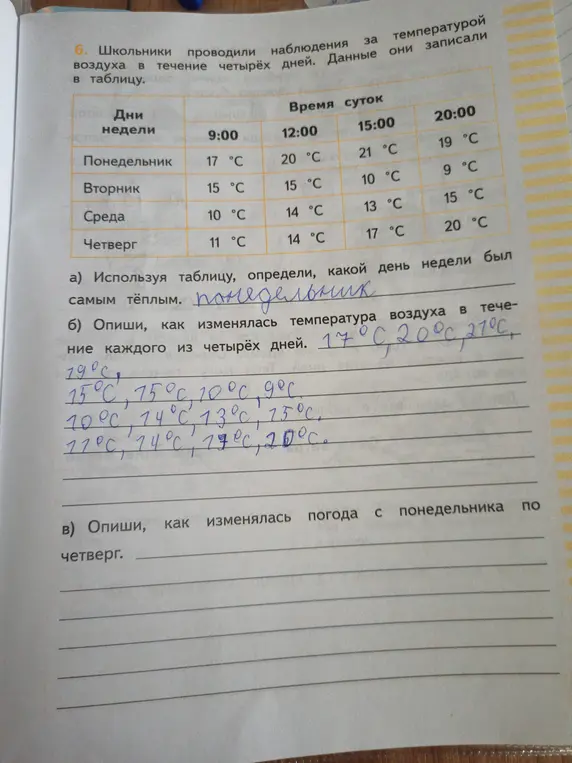 6. Школьники проводили наблюдения за температурой
воздуха в течение четырёх дней. Данные они записали
в таблицу.
Дни недели Время суток
9:00 12:00 15:00 20:00
Понедельник 17 °С 20 °С 21 °С 19 °С
Вторник 15 °С 15 °С 10 °С 9 °С
Среда 10 °С 14 °С 13 °С 15 °С
Четверг 11 °С 14 °С 17 °С 20 °С
а) Используя таблицу, определи, какой день недели был
самым тёплым. понедельник
б) Опиши, как изменялась температура воздуха в тече-
ние каждого из четырёх дней. 17°С, 20°С, 21°С,
19°С,
15°С, 15°С, 10°С, 9°С.
10°С, 14°С, 13°С, 15°С.
11°С, 14°С, 17°С, 20°С.
в) Опиши, как изменялась погода с понедельника по
четверг.